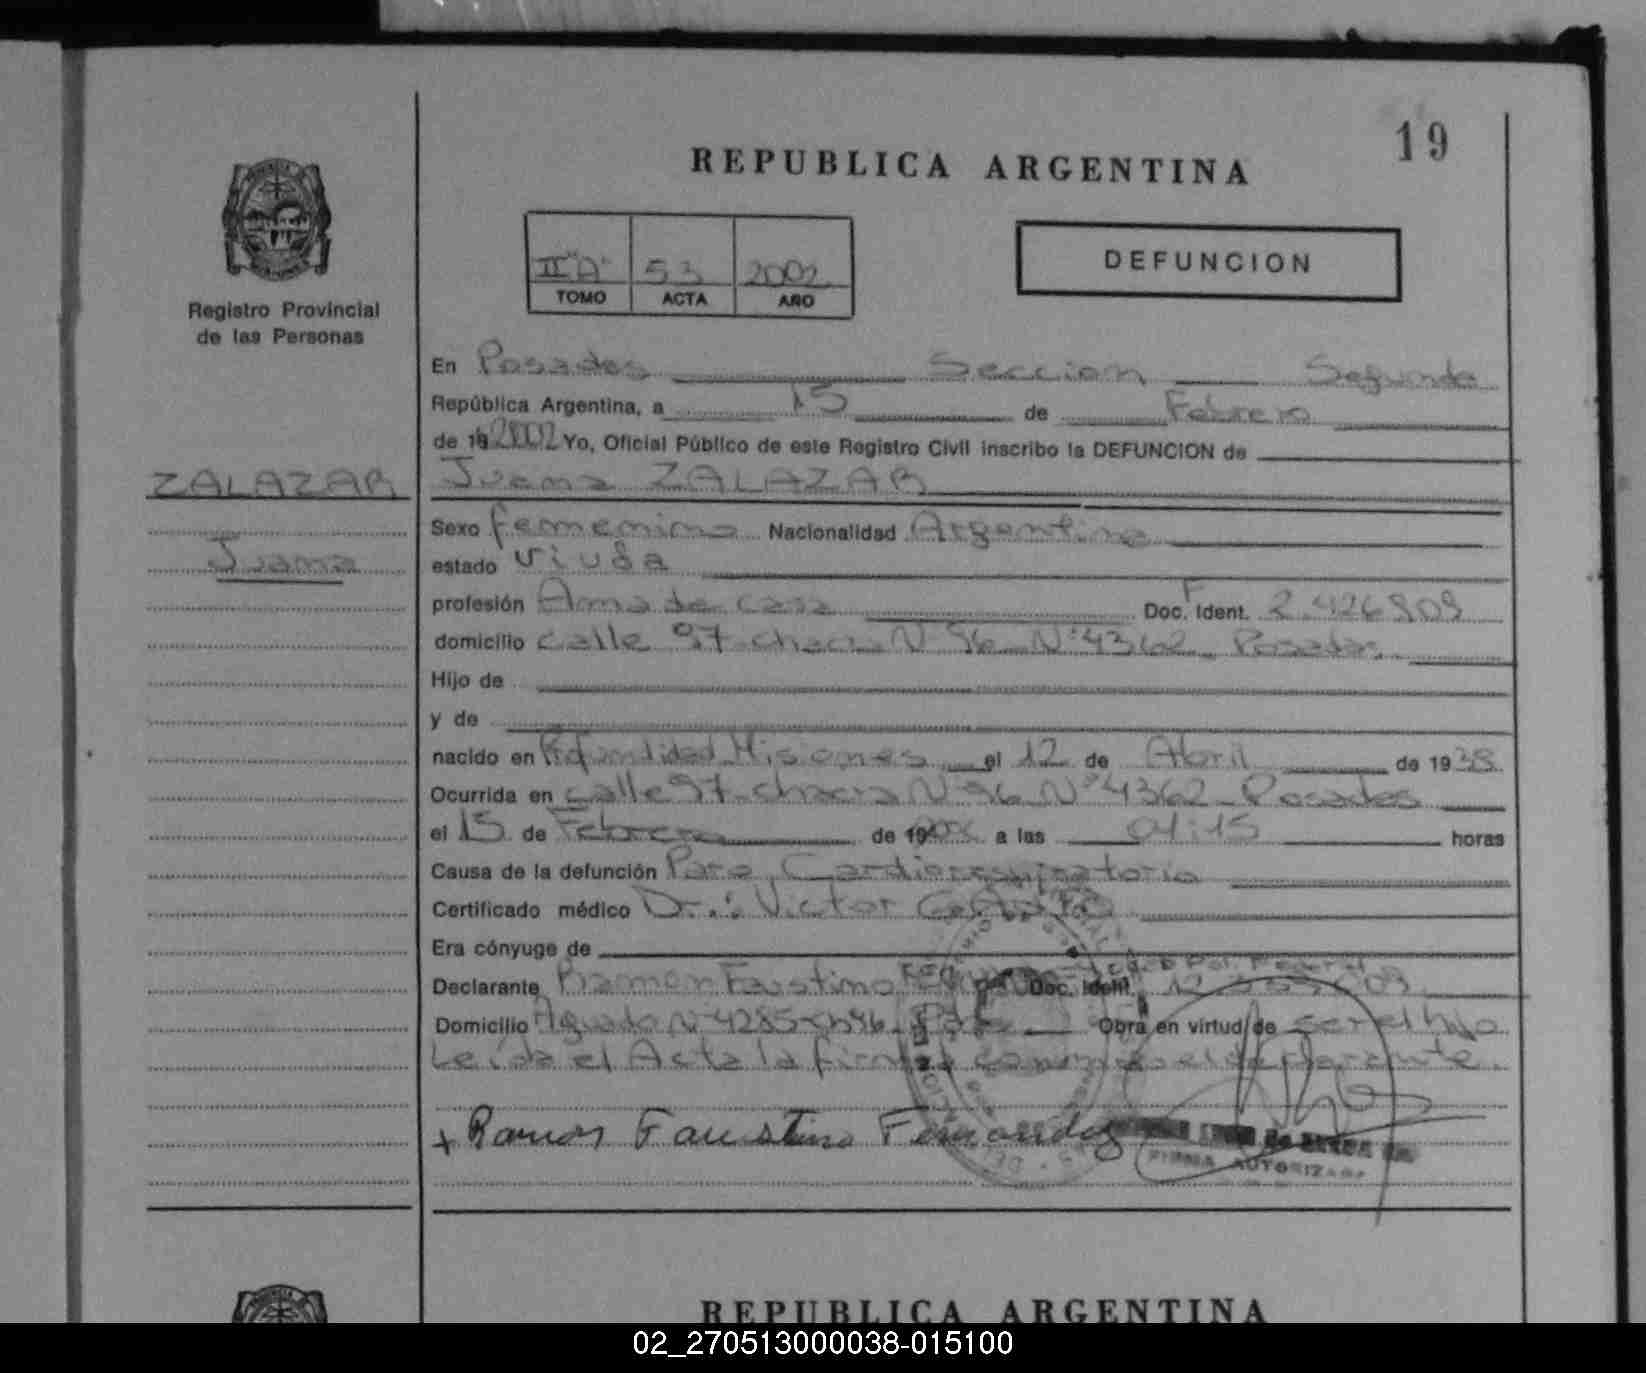 19
REPUBLICA ARGENTINA
II "A" 53 2002
TOMO ACTA AÑO
DEFUNCION
Registro Provincial
de las Personas
En Posadas Seccion Segunda
República Argentina, a 15 de Febrero
de 19 2002 Yo, Oficial Público de este Registro Civil inscribo la DEFUNCION de
ZALAZAR
Juana ZALAZAR
Juana
Sexo femenino Nacionalidad Argentina
estado viuda
profesión Ama de casa Doc. Ident. F 2.426.909
domicilio calle 97 - chacra N 96 - Nº 4362 - Posadas
Hijo de
y de
nacido en Profundidad Misiones el 12 de Abril de 1938
Ocurrida en calle 97 - chacra N 96 Nº 4362 - Posadas
el 15 de Febrero de 19 2002 a las 04:15 horas
Causa de la defunción Paro Cardiorespiratorio
Certificado médico Dr.: Victor
Era cónyuge de
Declarante Ramon Faustino Doc. Ident.
Domicilio Aguado N 4285 ch 96 - Pdas Obra en virtud de ser el hijo
Leída el Acta la firma conmigo el declarante.
+ Ramon Faustino Fernandez
FIRMA AUTORIZADA
REPUBLICA ARGENTINA
02_270513000038-015100